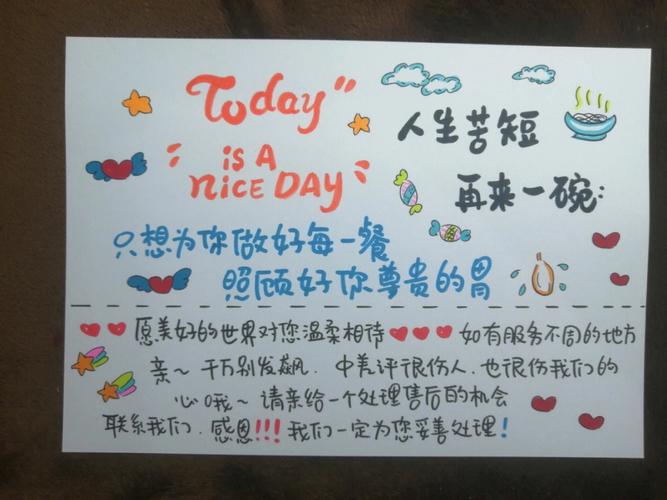 Today"
is A
nice DAY
人生苦短
再来一碗:
只想为你做好每一餐
照顾好你尊贵的胃
愿美好的世界对您温柔相待 如有服务不周的地方
亲~千万别发飙. 中差评很伤人.也很伤我们的
心哦~ 请亲给一个处理售后的机会
联系我们.感恩!!! 我们一定为您妥善处理!